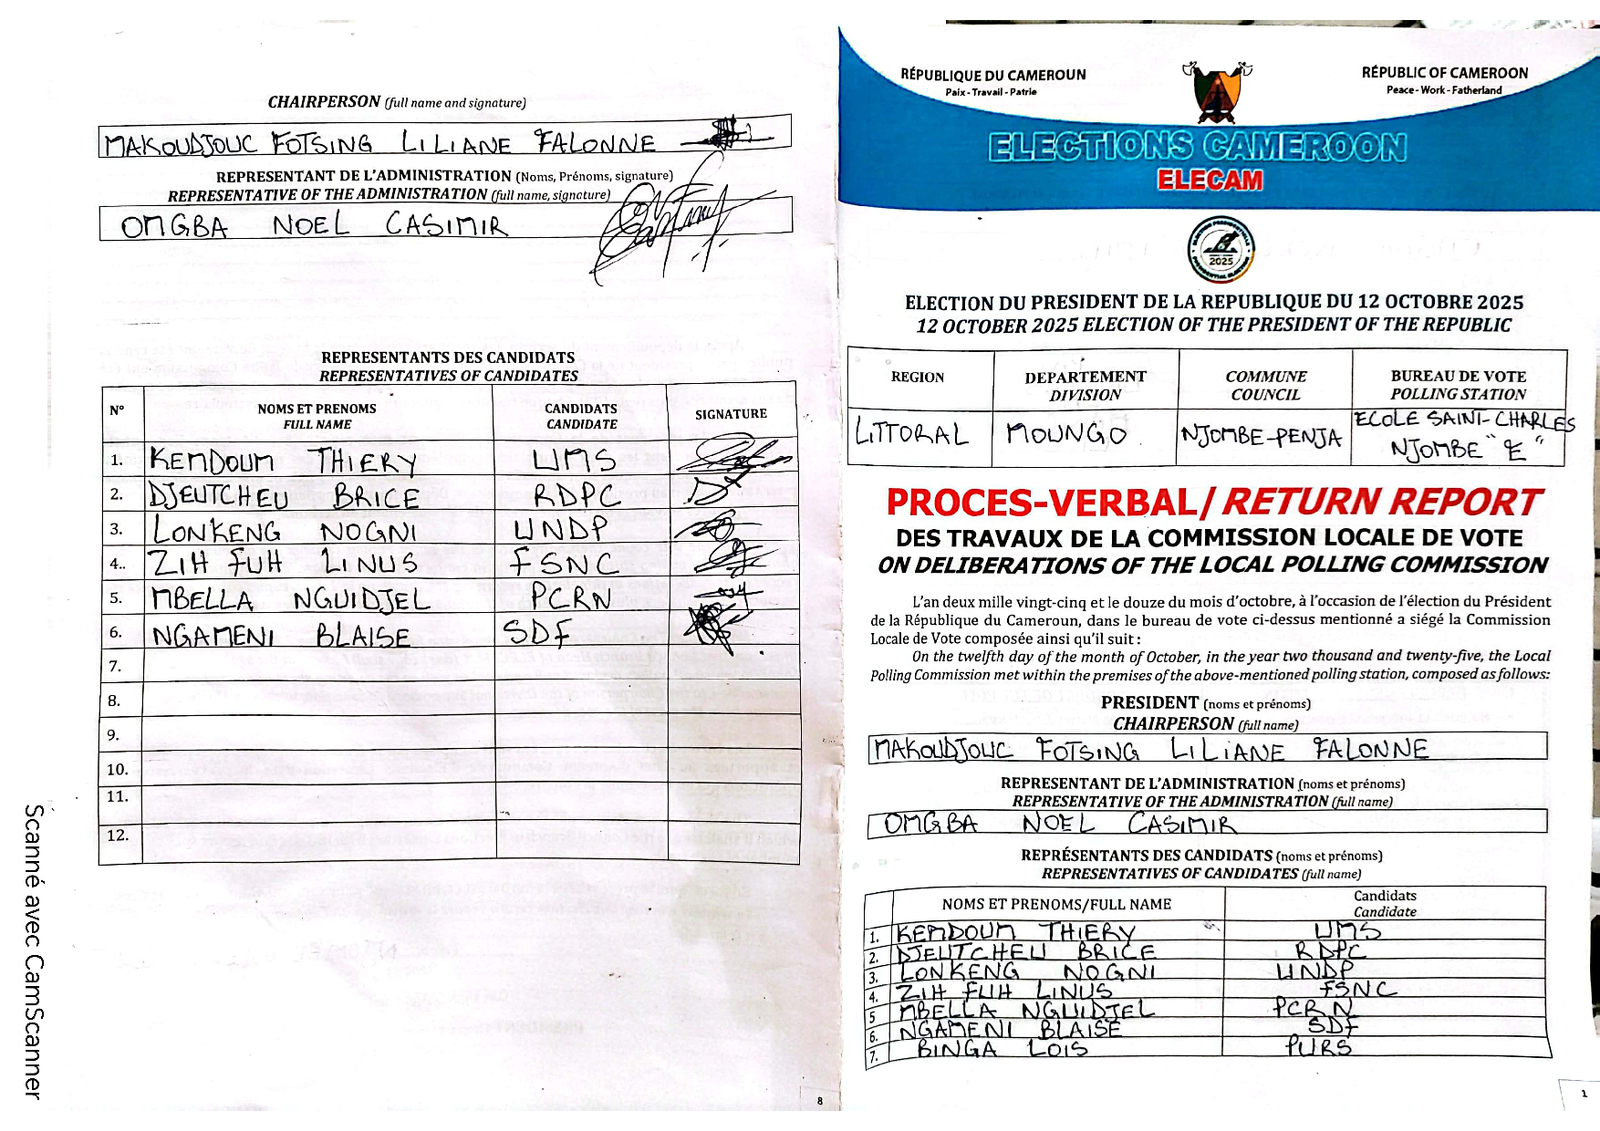 CHAIRPERSON (full name and signature)
MAKOUDJOUC FOTSING LILIANE FALONNE
REPRESENTANT DE L'ADMINISTRATION (Noms, Prénoms, signature)
REPRESENTATIVE OF THE ADMINISTRATION (full name, signature)
OMGBA NOEL CASIMIR
REPRESENTANTS DES CANDIDATS
REPRESENTATIVES OF CANDIDATES
N° NOMS ET PRENOMS FULL NAME CANDIDATS CANDIDATE SIGNATURE
1. KEMDOUM THIERY UMS
2. DJEUTCHEU BRICE RDPC
3. LONKENG NOGNI UNDP
4.. ZIH FUH LINUS FSNC
5. MBELLA NGUIDJEL PCRN
6. NGAMENI BLAISE SDF
7.
8.
9.
10.
11.
12.
8
Scanné avec CamScanner
RÉPUBLIQUE DU CAMEROUN
Paix - Travail - Patrie
RÉPUBLIC OF CAMEROON
Peace - Work - Fatherland
ELECTIONS CAMEROON
ELECAM
ELECTION PRESIDENTIELLE
2025
PRESIDENTIAL ELECTION
ELECTION DU PRESIDENT DE LA REPUBLIQUE DU 12 OCTOBRE 2025
12 OCTOBER 2025 ELECTION OF THE PRESIDENT OF THE REPUBLIC
REGION DEPARTEMENT DIVISION COMMUNE COUNCIL BUREAU DE VOTE POLLING STATION
LITTORAL MOUNGO NJOMBE-PENJA ECOLE SAINT-CHARLES NJOMBE "E"
PROCES-VERBAL/ RETURN REPORT
DES TRAVAUX DE LA COMMISSION LOCALE DE VOTE
ON DELIBERATIONS OF THE LOCAL POLLING COMMISSION
L'an deux mille vingt-cinq et le douze du mois d'octobre, à l'occasion de l'élection du Président
de la République du Cameroun, dans le bureau de vote ci-dessus mentionné a siégé la Commission
Locale de Vote composée ainsi qu'il suit :
On the twelfth day of the month of October, in the year two thousand and twenty-five, the Local
Polling Commission met within the premises of the above-mentioned polling station, composed as follows:
PRESIDENT (noms et prénoms)
CHAIRPERSON (full name)
MAKOUDJOUC FOTSING LILIANE FALONNE
REPRESENTANT DE L'ADMINISTRATION (noms et prénoms)
REPRESENTATIVE OF THE ADMINISTRATION (full name)
OMGBA NOEL CASIMIR
REPRÉSENTANTS DES CANDIDATS (noms et prénoms)
REPRESENTATIVES OF CANDIDATES (full name)
NOMS ET PRENOMS/FULL NAME Candidats Candidate
1. KEMDOUM THIERY UMS
2. DJEUTCHEU BRICE RDPC
3. LONKENG NOGNI UNDP
4. ZIH FUH LINUS FSNC
5 MBELLA NGUIDJEL PCRN
6. NGAMENI BLAISE SDF
7. BINGA LOIS PURS
1